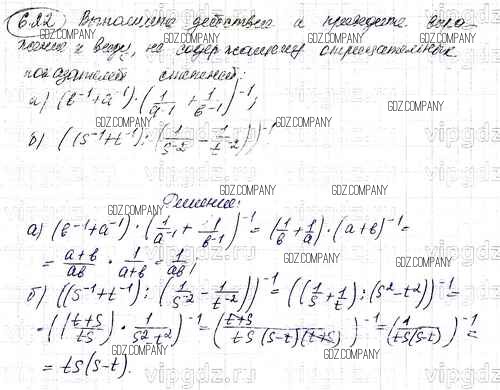 6.22 Выполните действия и приведите выра-
жение к виду, не содержащему отрицательных
показателей степеней:
а) (b⁻¹+a⁻¹)·(1/a⁻¹ + 1/b⁻¹)⁻¹;
б) ((s⁻¹+t⁻¹):(1/s⁻² - 1/t⁻²))⁻¹
Решение:
а) (b⁻¹+a⁻¹)·(1/a⁻¹ + 1/b⁻¹)⁻¹ = (1/b + 1/a)·(a+b)⁻¹ =
= (a+b)/ab · 1/(a+b) = 1/ab;
б) ((s⁻¹+t⁻¹):(1/s⁻² - 1/t⁻²))⁻¹ = ((1/s + 1/t):(s²-t²))⁻¹ =
= ((t+s)/ts · 1/(s²-t²))⁻¹ = ((t+s)/(ts(s-t)(t+s)))⁻¹ = (1/(ts(s-t)))⁻¹ =
= ts(s-t).
GDZ.COMPANY
vipgdz.ru